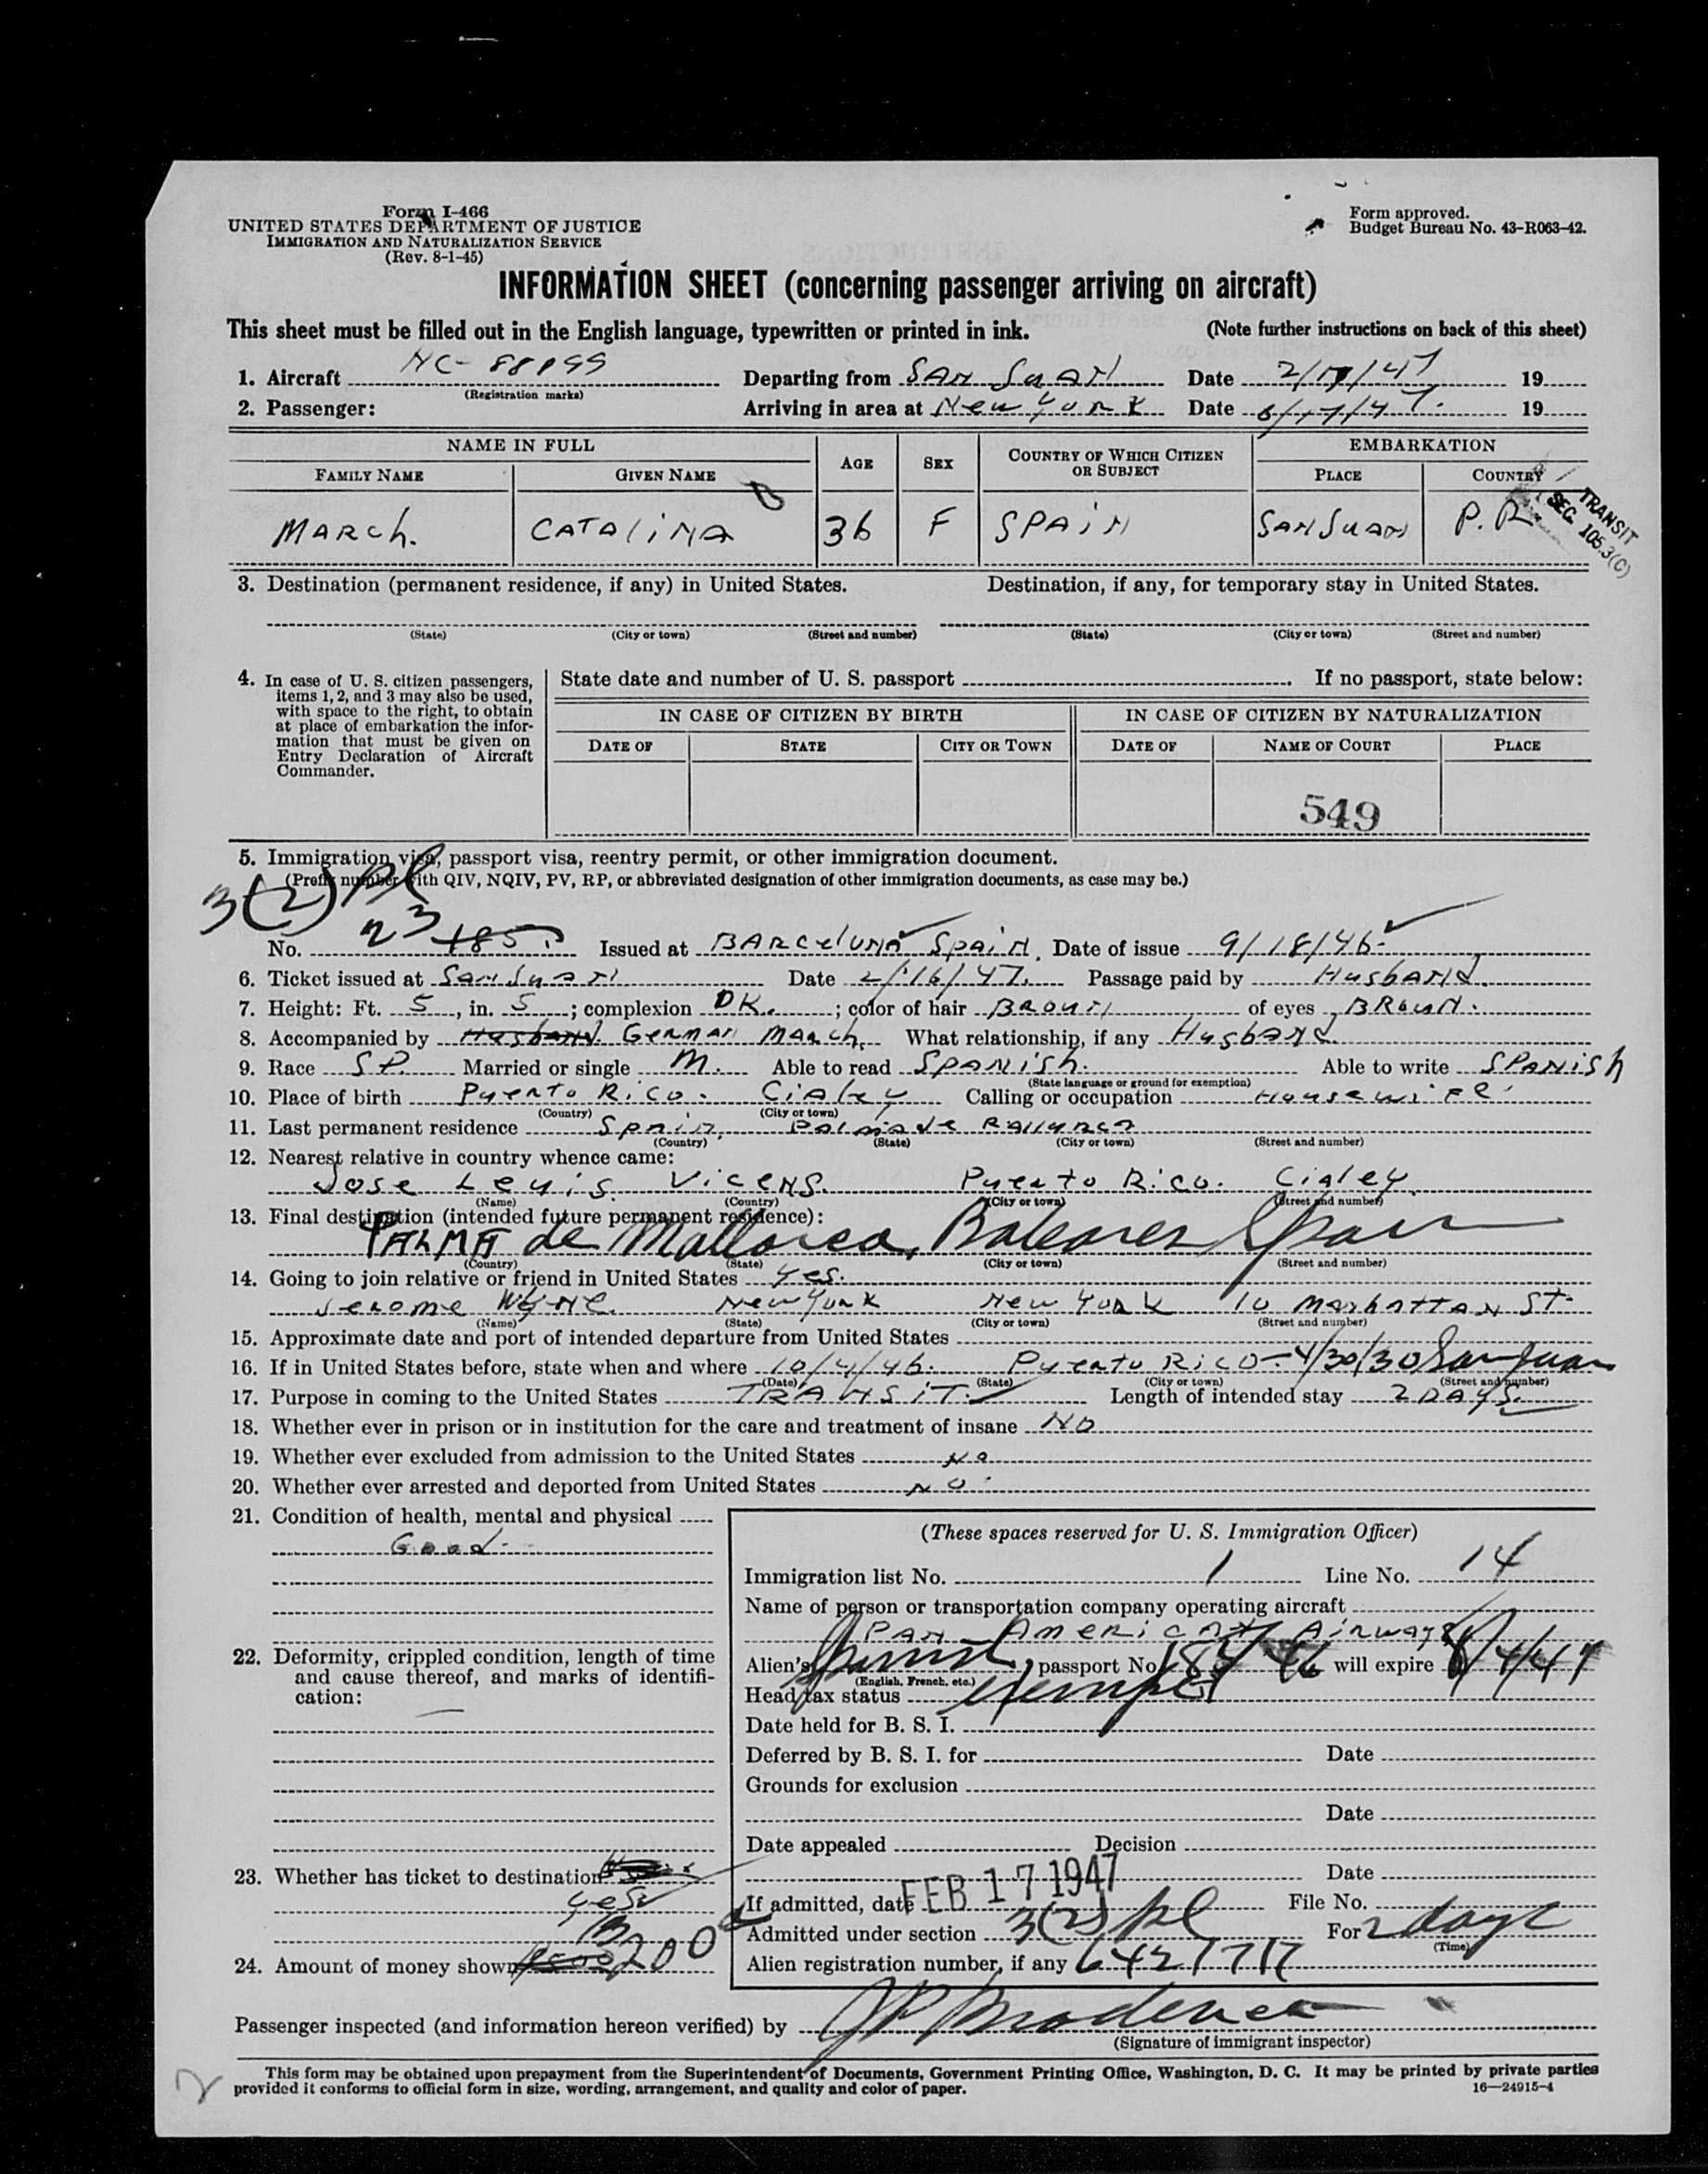 Form I-466
UNITED STATES DEPARTMENT OF JUSTICE
IMMIGRATION AND NATURALIZATION SERVICE
(Rev. 8-1-45)
Form approved.
Budget Bureau No. 43-R063-42.
INFORMATION SHEET (concerning passenger arriving on aircraft)
This sheet must be filled out in the English language, typewritten or printed in ink. (Note further instructions on back of this sheet)
1. Aircraft NC- 88899 Departing from SAN JUAN Date 2/17/47 19
(Registration marks)
2. Passenger: Arriving in area at New York Date 19
NAME IN FULL AGE SEX COUNTRY OF WHICH CITIZEN OR SUBJECT EMBARKATION
FAMILY NAME GIVEN NAME PLACE COUNTRY
MARCh. CATALiNA 36 F SPAiN SAN JUAN P.R.
TRANSIT
SEC. 105.3(C)
3. Destination (permanent residence, if any) in United States. Destination, if any, for temporary stay in United States.
(State) (City or town) (Street and number) (State) (City or town) (Street and number)
4. In case of U. S. citizen passengers, items 1, 2, and 3 may also be used, with space to the right, to obtain at place of embarkation the information that must be given on Entry Declaration of Aircraft Commander.
State date and number of U. S. passport If no passport, state below:
IN CASE OF CITIZEN BY BIRTH IN CASE OF CITIZEN BY NATURALIZATION
DATE OF STATE CITY OR TOWN DATE OF NAME OF COURT PLACE
549
5. Immigration visa, passport visa, reentry permit, or other immigration document.
(Prefix number with QIV, NQIV, PV, RP, or abbreviated designation of other immigration documents, as case may be.)
3(2) Pl
No. 23 185. Issued at BARCelONA SpaiN. Date of issue 9/18/46
6. Ticket issued at San Juan Date 2/16/47. Passage paid by HusbaNd.
7. Height: Ft. 5, in. 5; complexion DK.; color of hair BROWN of eyes BROWN.
8. Accompanied by Husband. GermaN March. What relationship, if any HusbaNd.
9. Race SP. Married or single M. Able to read SPANish. Able to write SPANish
(State language or ground for exemption)
10. Place of birth Puerto Rico. Ciales Calling or occupation Housewife.
(Country) (City or town)
11. Last permanent residence Spain,
(Country) (State) (City or town) (Street and number)
12. Nearest relative in country whence came:
Jose Leuis. VicENS. Puerto Rico. Ciales.
(Name) (Country) (City or town) (Street and number)
13. Final destination (intended future permanent residence):
PALMA de Mallorca, Baleares Spain
(Country) (State) (City or town) (Street and number)
14. Going to join relative or friend in United States yes.
Jerome New York New York 10 MaNhattaN St.
(Name) (State) (City or town) (Street and number)
15. Approximate date and port of intended departure from United States
16. If in United States before, state when and where 10/4/46. Puerto Rico - 4/30/30 San Juan
(Date) (State) (City or town) (Street and number)
17. Purpose in coming to the United States TRANSIT. Length of intended stay 2 DAYS.
18. Whether ever in prison or in institution for the care and treatment of insane NO
19. Whether ever excluded from admission to the United States No
20. Whether ever arrested and deported from United States NO
21. Condition of health, mental and physical
Good
22. Deformity, crippled condition, length of time and cause thereof, and marks of identification:
23. Whether has ticket to destination
yes
24. Amount of money shown 200
(These spaces reserved for U. S. Immigration Officer)
Immigration list No. 1 Line No. 14
Name of person or transportation company operating aircraft
PAN AmericaN Airways
Alien's passport No. will expire
(English, French, etc.)
Head tax status exempt
Date held for B. S. I.
Deferred by B. S. I. for Date
Grounds for exclusion
Date
Date appealed Decision
Date
If admitted, date FEB 17 1947 File No.
Admitted under section 3(2) pl For 2 days
(Time)
Alien registration number, if any 6421717
Passenger inspected (and information hereon verified) by
(Signature of immigrant inspector)
This form may be obtained upon prepayment from the Superintendent of Documents, Government Printing Office, Washington, D. C. It may be printed by private parties
provided it conforms to official form in size, wording, arrangement, and quality and color of paper. 16—24915-4
2